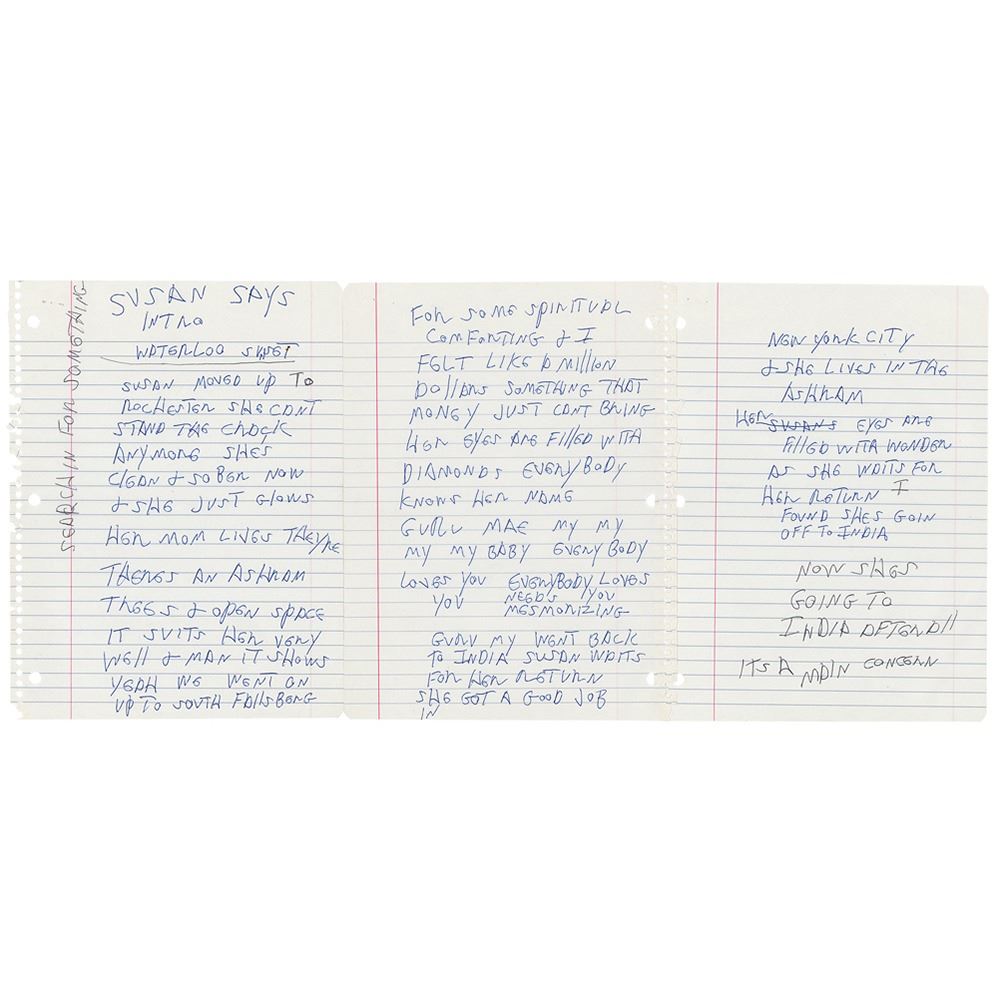 SEARCH IN FOR SOMETHING
SUSAN SAYS
INTRO
WATERLOO
SUSAN MOVED UP TO
ROCHESTER SHE CANT
STAND THE CRACK
ANYMORE SHES
CLEAN & SOBER NOW
& SHE JUST GLOWS
HER MOM LIVES THEYRE
THERES AN ASHRAM
TREES & OPEN SPACE
IT SUITS HER VERY
WELL & MAN IT SHOWS
YEAH WE WENT ON
UP TO SOUTH FALLSBERG
FOR SOME SPIRITUAL
COMFORTING & I
FELT LIKE A MILLION
DOLLARS SOMETHING THAT
MONEY JUST CANT BRING
HER EYES ARE FILLED WITH
DIAMONDS EVERYBODY
KNOWS HER NAME
GURU MAE MY MY
MY MY BABY EVERYBODY
LOVES YOU EVERYBODY LOVES
YOU NEEDS YOU
MESMORIZING
GURU MY WENT BACK
TO INDIA SUSAN WAITS
FOR HER RETURN
SHE GOT A GOOD JOB
IN
NEW YORK CITY
& SHE LIVES IN THE
ASHRAM
HER SUSANS EYES ARE
FILLED WITH WONDER
AS SHE WAITS FOR
HER RETURN I
FOUND SHES GOIN
OFF TO INDIA
NOW SHES
GOING TO
INDIA
ITS A MAIN CONCERN